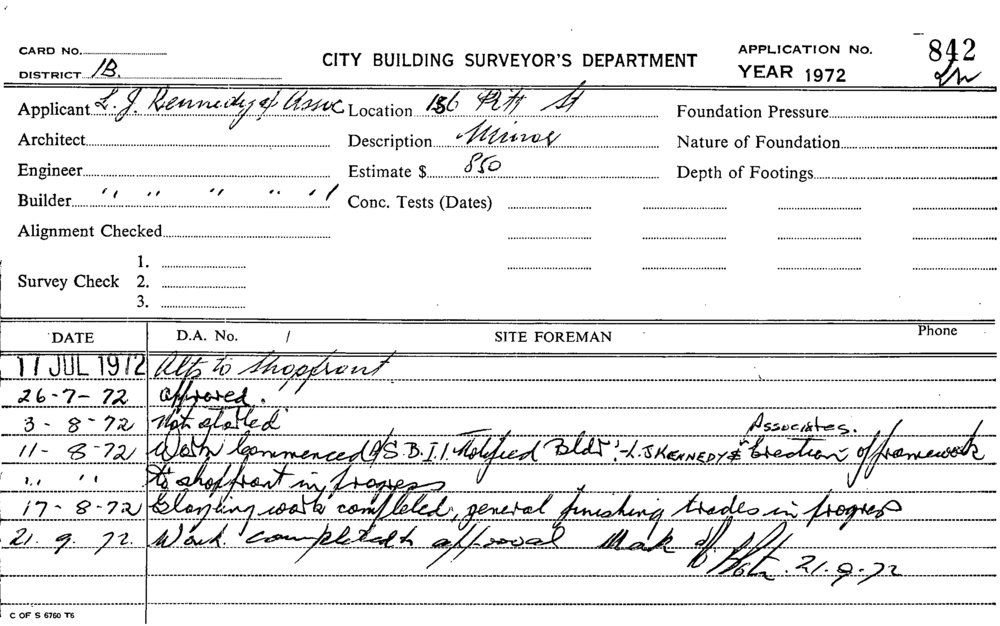 CARD No.
DISTRICT 1B.
CITY BUILDING SURVEYOR'S DEPARTMENT
APPLICATION No. 842
YEAR 1972
Applicant L. J. Kennedy & Assoc Location 156 Pitt St Foundation Pressure
Architect Description Minor Nature of Foundation
Engineer Estimate $ 850 Depth of Footings
Builder " " " " " Conc. Tests (Dates)
Alignment Checked
1.
Survey Check 2.
3.
DATE D.A. No. / SITE FOREMAN Phone
17 JUL 1972 Alts to Shopfront
26-7-72 approved.
3-8-72 Not started
Associates.
11-8-72 Work Commenced S.B.I.1. Notified Bldr. L.J KENNEDY & Erection of framework
" " to shopfront in progress
17-8-72 Glazing work completed, general finishing trades in progress
21.9.72. Work completed approval
21.9.72
C OF S 6760 T6